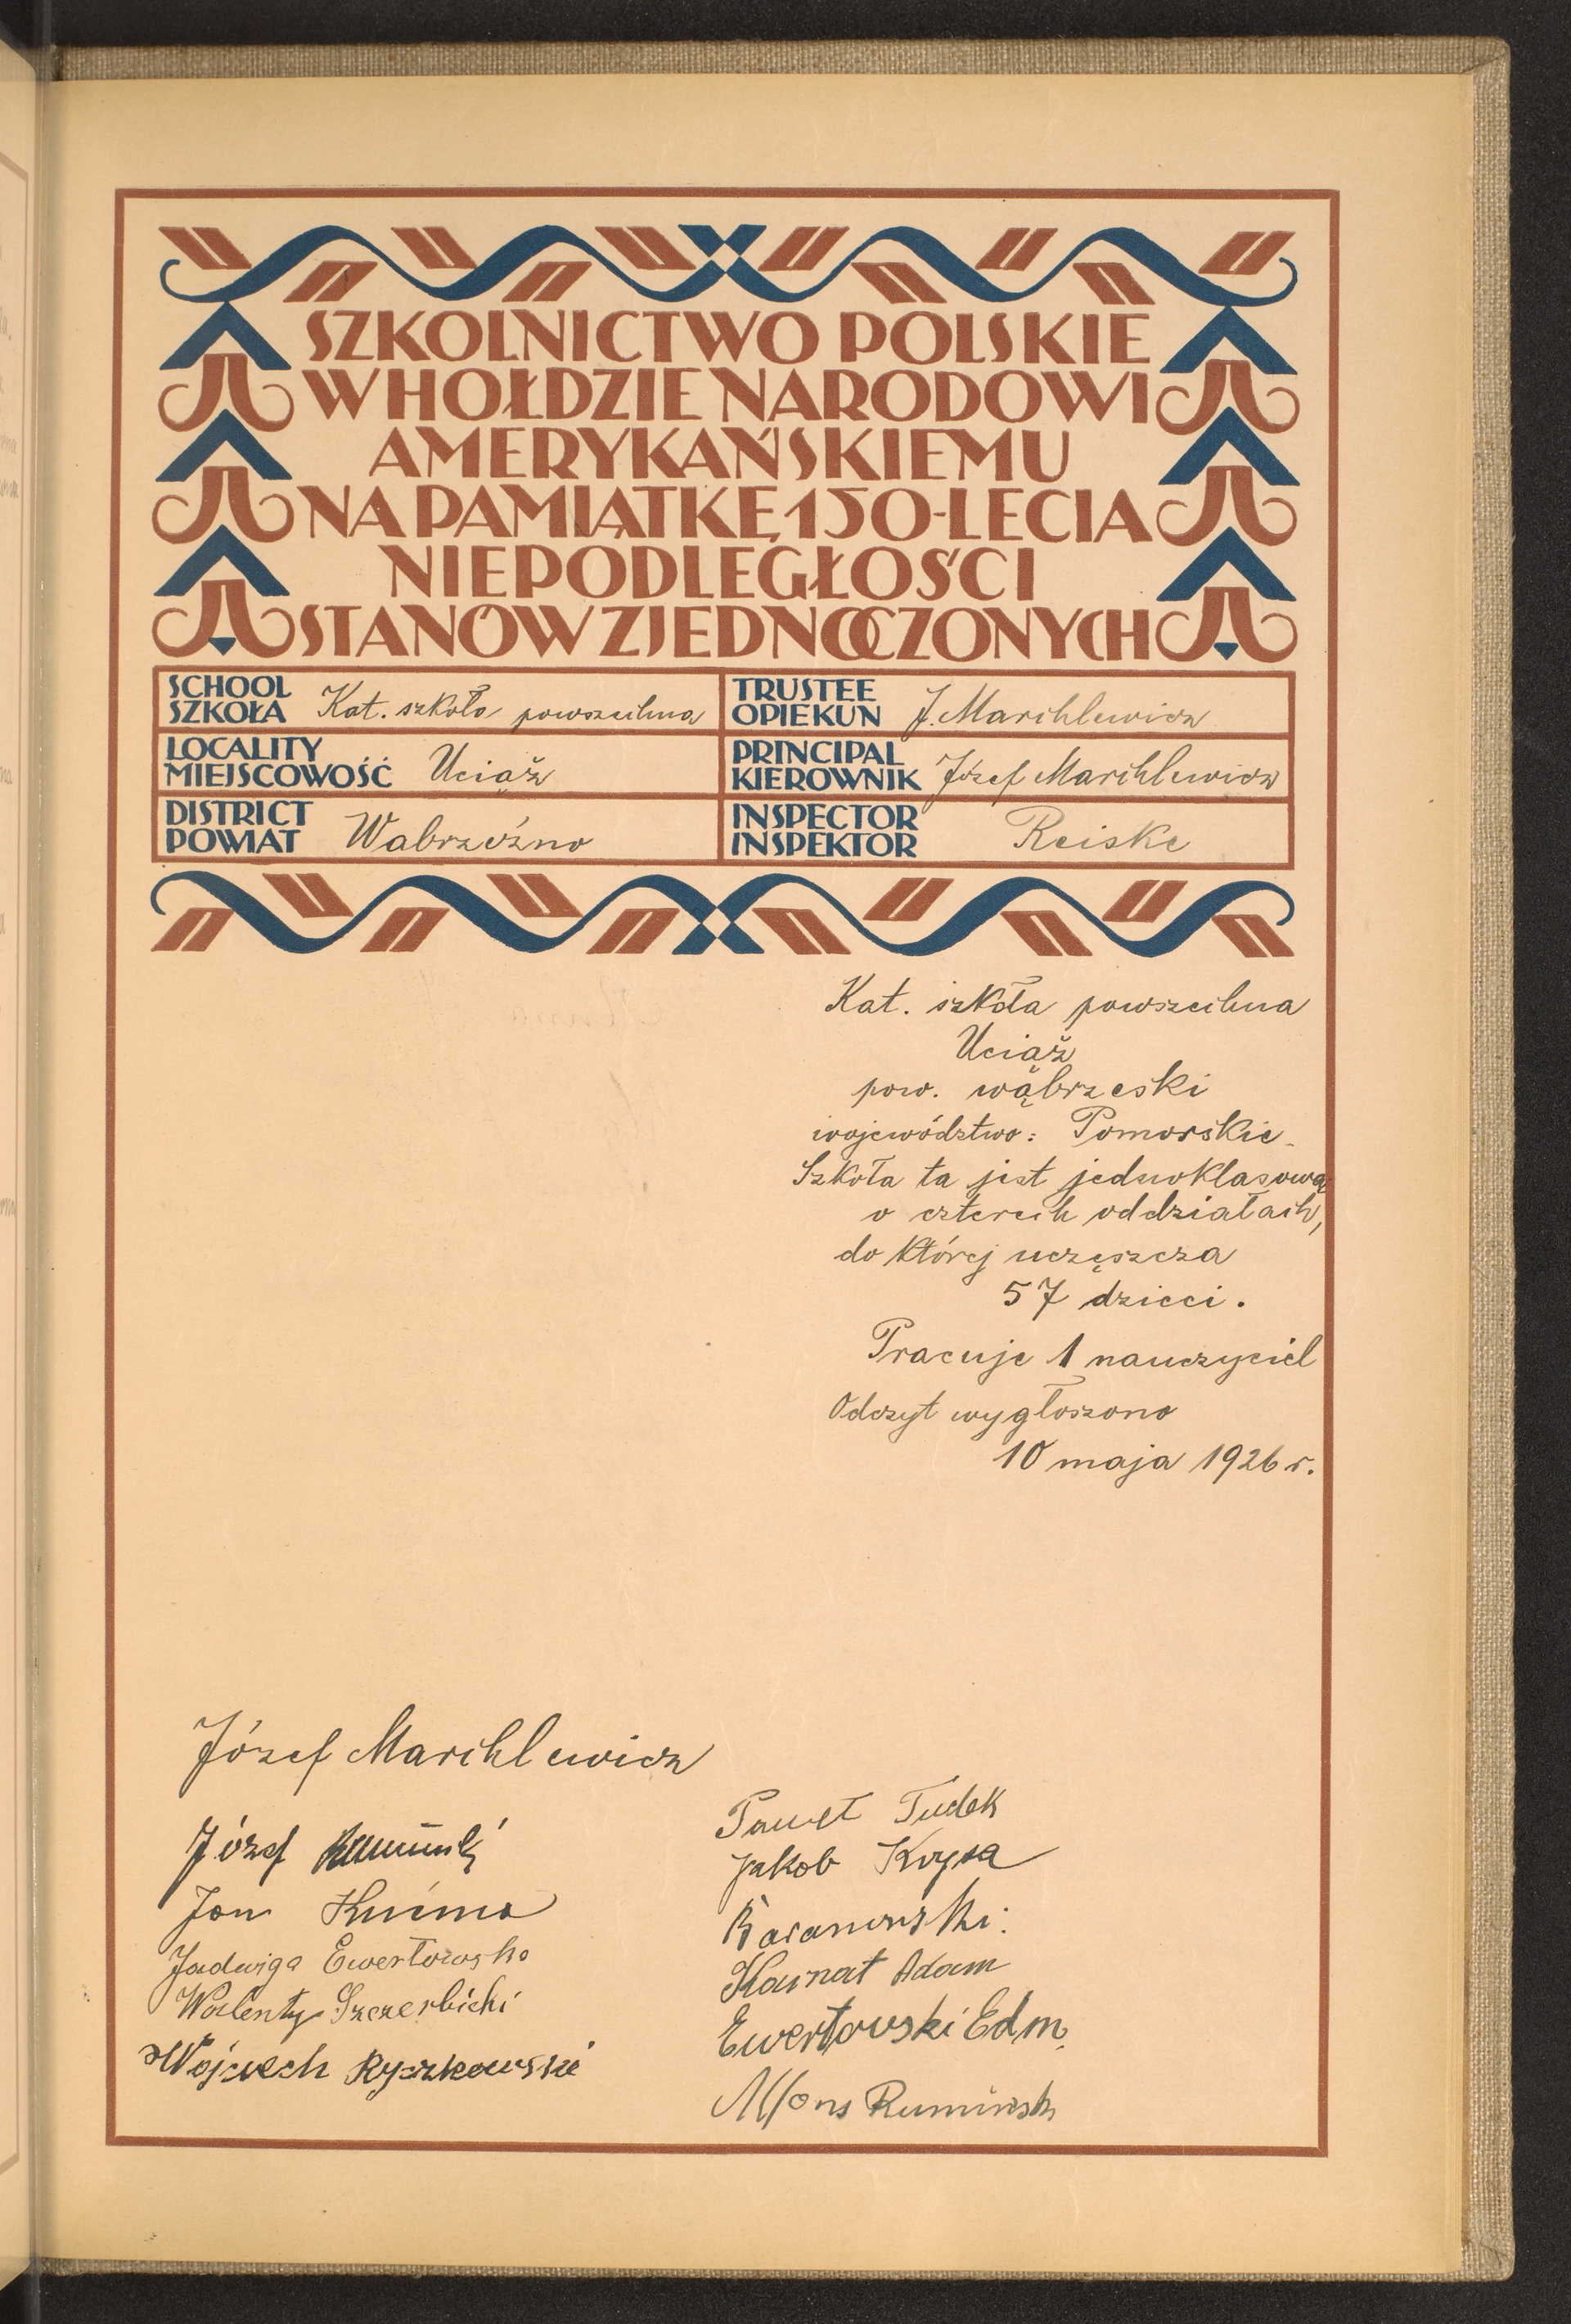 SZKOLNICTWO POLSKIE
W HOŁDZIE NARODOWI
AMERYKAŃSKIEMU
NA PAMIĄTKĘ 150-LECIA
NIEPODLEGŁOŚCI
STANÓW ZJEDNOCZONYCH
SCHOOL
SZKOŁA Kat. szkoła powszechna
TRUSTEE
OPIEKUN J. Marchlewicz
LOCALITY
MIEJSCOWOŚĆ Uciąż
PRINCIPAL
KIEROWNIK Józef Marchlewicz
DISTRICT
POWIAT Wabrzeźno
INSPECTOR
INSPEKTOR Reiske
Kat. szkoła powszechna
Uciąż
pow. wąbrzeski
województwo: Pomorskie.
Szkoła ta jest jednoklasową
o czterech oddziałach,
do której uczęszcza
57 dzieci.
Pracuje 1 nauczyciel
Odczyt wygłoszono
10 maja 1926 r.
Józef Marchlewicz
Józef
Jan
Jadwiga Ewertowska
Walenty Szczerbicki
Wojciech Ryszkowski
Paweł Tudek
Jakob Krysa
Baranowski
Adam
Ewertowski Edm.
Alfons Rumiński